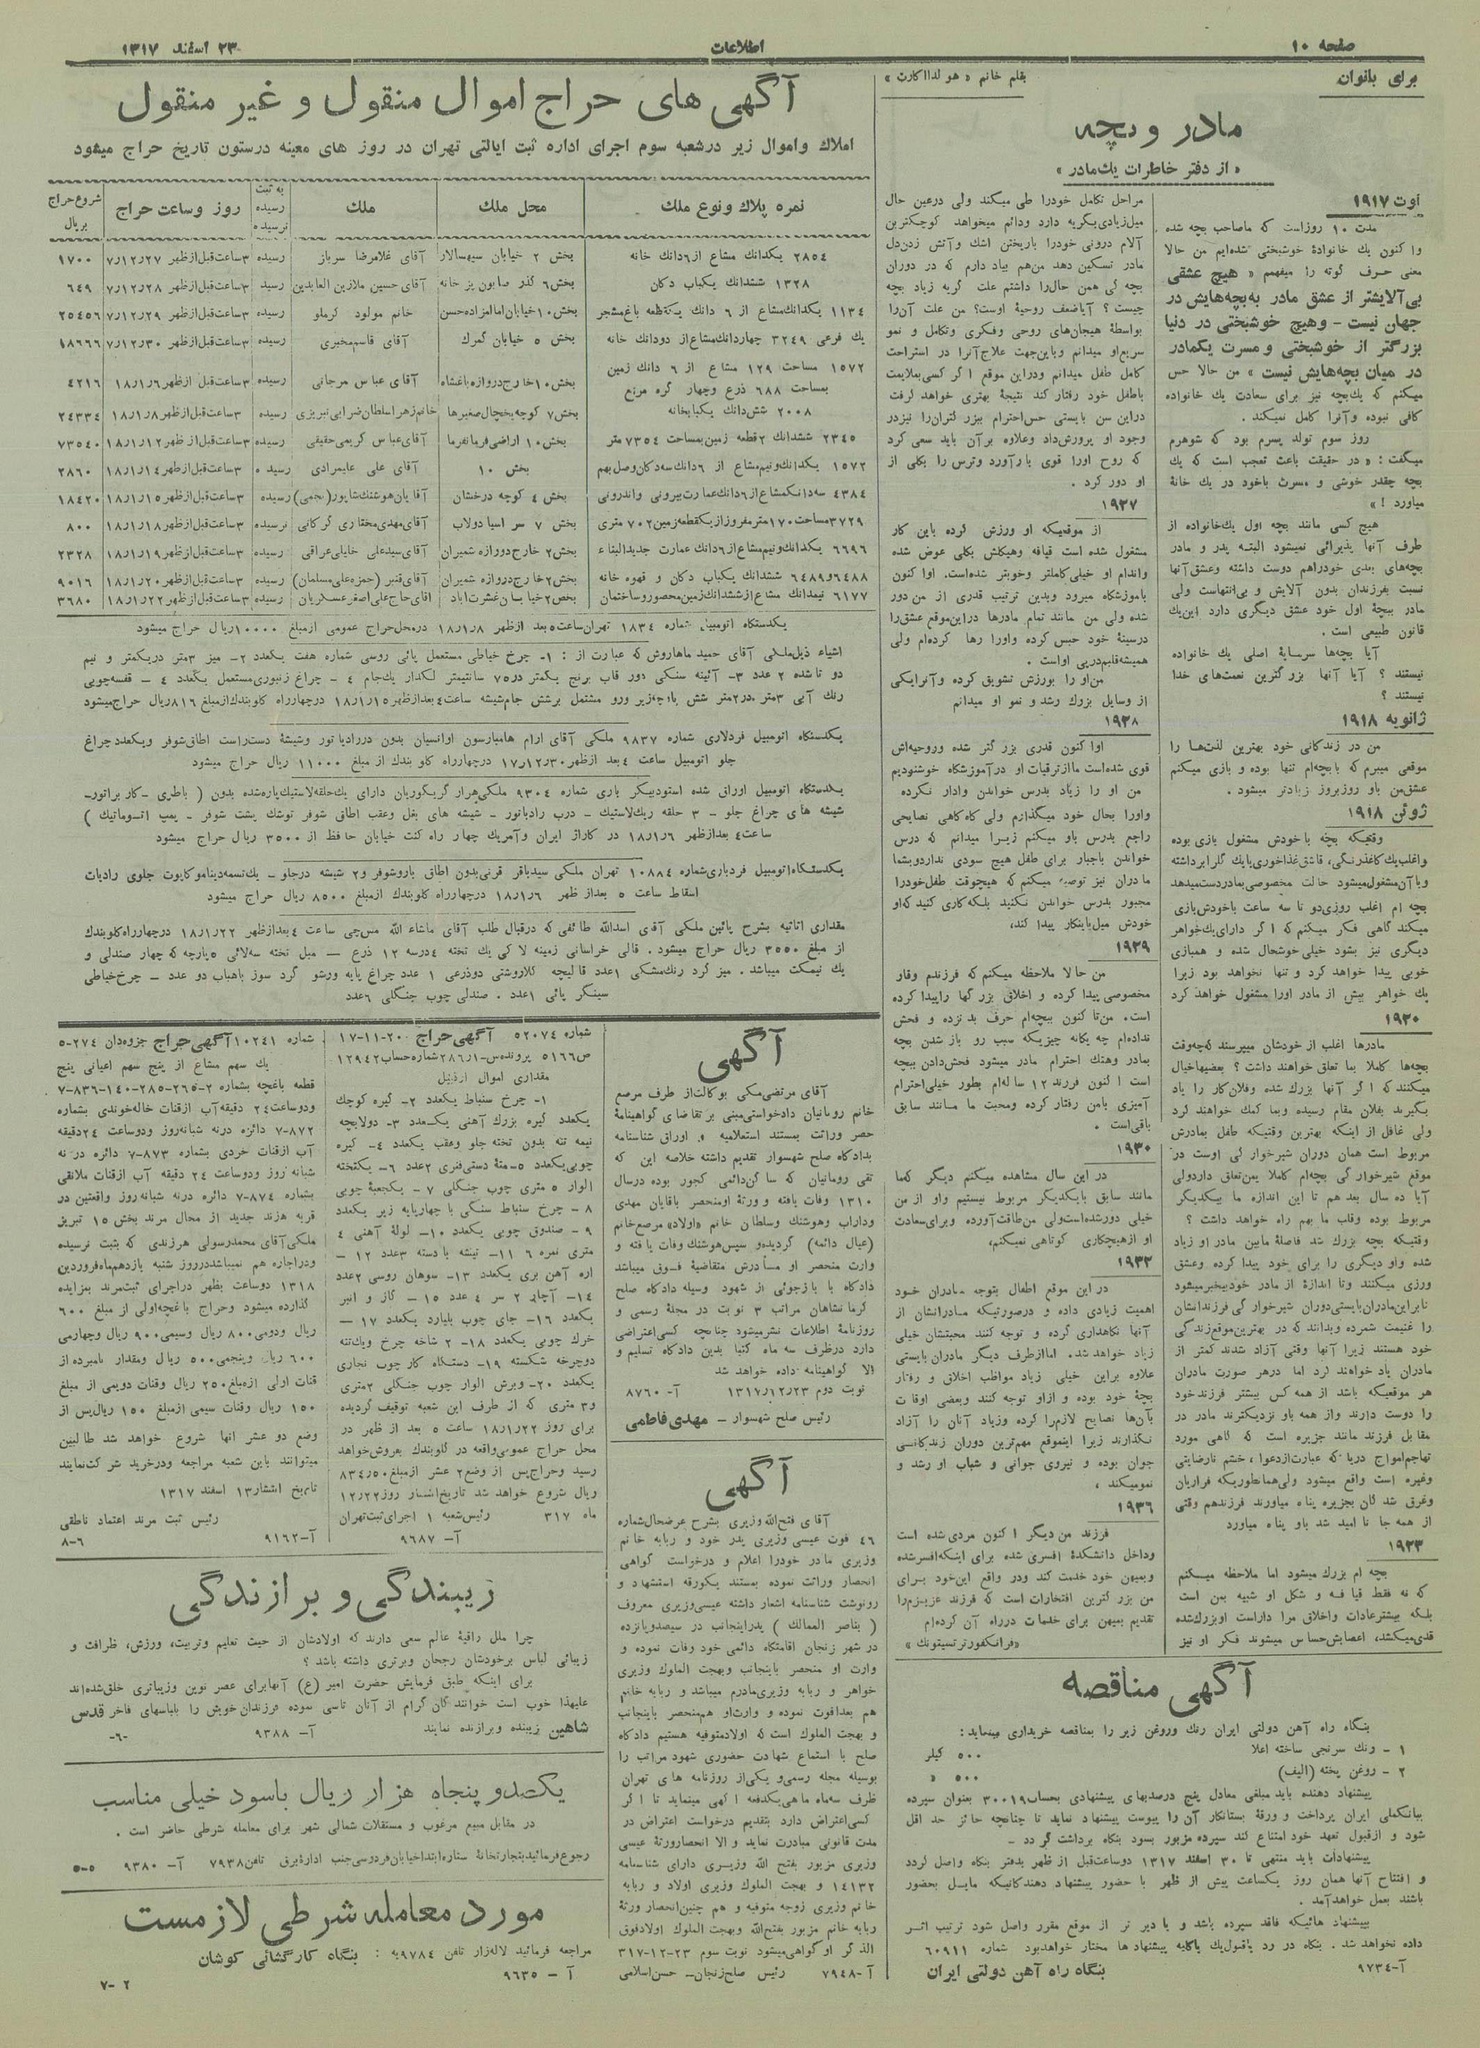 صفحه ۱۰
اطلاعات
۲۳ اسفند ۱۳۱۷
برای بانوان
بقلم خانم « هولدا اکارت »
مادر و بچه
« از دفتر خاطرات یك مادر »
اوت ۱۹۱۷
مدت ۱۰ روز است که ما صاحب بچه شده
و اکنون یك خانوادۀ خوشبختی شده‌ایم من حالا
معنی حرف گوته را میفهمم « هیچ عشقی
بی‌آلایشتر از عشق مادر به بچه‌هایش در
جهان نیست - وهیچ خوشبختی در دنیا
بزرگتر از خوشبختی و مسرت یکمادر
در میان بچه‌هایش نیست » من حالا حس
میکنم که یك بچه نیز برای سعادت یك خانواده
کافی نبوده و آنرا کامل نمیکند.
روز سوم تولد پسرم بود که شوهرم
میگفت : « در حقیقت باعث تعجب است که یك
بچه چقدر خوشی و مسرت باخود در یك خانۀ
میاورد ! »
هیچ کسی مانند بچه اول یك خانواده از
طرف آنها پذیرائی نمیشود البته پدر و مادر
بچه‌های بعدی خودراهم دوست داشته وعشق آنها
نسبت بفرزندان بدون آلایش و بی‌انتهاست ولی
مادر ببچۀ اول خود عشق دیگری دارد این یك
قانون طبیعی است .
آیا بچه‌ها سرسایۀ اصلی یك خانواده
نیستند ؟ آیا آنها بزرگترین نعمت‌های خدا
نیستند ؟
ژانویه ۱۹۱۸
من در زندگانی خود بهترین لذت‌ها را
موقعی میبرم که بابچه‌ام تنها بوده و بازی میکنم
عشق من باو روز بروز زیادتر میشود .
ژوئن ۱۹۱۸
وقتیکه بچه با خودش مشغول بازی بوده
بچه ام اغلب روزی دو تا سه ساعت باخودش بازی
میکند گاهی فکر میکنم که اگر دارای یك خواهر
دیگری نیز بشود خیلی خوشحال شده و همبازی
خوبی پیدا خواهد کرد و تنها نخواهد بود زیرا
یك خواهر بیش از مادر اورا مشغول خواهد کرد
۱۹۲۰
مادرها اغلب از خودشان میپرسند که چه وقت
بچه‌ها کاملا بما تعلق خواهند داشت ؟ بعضیها خیال
میکنند که اگر آنها بزرگ شده وفلان کار را یاد
بگیرند بفلان مقام رسیده وبما کمك خواهند کرد
ولی غافل از اینکه بهترین وقتیکه طفل بمادرش
مربوط است همان دوران شیرخوارگی اوست در
موقع شیرخوارگی بچه‌ام کاملا بمن تعلق دارد ولی
آیا ده سال بعد هم تا این اندازه ما بیکدیگر
مربوط بوده وقلب ما بهم راه خواهد داشت ؟
وقتیکه بچه بزرگ شد فاصلۀ مابین مادر او زیاد
شده واو دیگری را برای خود پیدا کرده وعشق
ورزی میکنند وتا اندازۀ از مادر خود بیخبر میشود
بنابراین مادران بایستی دوران شیرخوارگی فرزندانشان
را غنیمت شمرده وبدانند که در بهترین موقع زندگی
خود هستند زیرا آنها وقتی آزاد شدند کمتر از
مادران یاد خواهند کرد اما در هر صورت مادران
هر موقعیکه باشد از همه کس بیشتر فرزند خود
را دوست دارند واز همه باو نزدیکترند مادر در
مقابل فرزند مانند جزیره است که گاهی مورد
تهاجم امواج دریا که عبارت از دعوا ، خشم نارضایتی
وغیره است واقع میشود ولی همانطوریکه فراریان
وغرق شدگان بجزیره پناه میاورند فرزند هم وقتی
از همه جا نا امید شد باو پناه میاورد
۱۹۲۳
بچه ام بزرگ میشود اما ملاحظه میکنم
که نه فقط قیافه و شکل او شبیه بمن است
بلکه بیشتر عادات واخلاق مرا داراست او بزرگ شده
قدمی میکشد، اعصابش حساس میشوند فکر او نیز
مراحل تکامل خودرا طی میکند ولی در عین حال
میل زیادی بگریه دارد ودائم میخواهد کوچکترین
آلام درونی خودرا باریختن اشك وآتش زدن دل
مادر تسکین دهد من هم بیاد دارم که در دوران
بچه گی همن حال را داشتم علت گریه زیاد بچه
چیست ؟ آیا ضعف روحیۀ اوست؟ من علت آن را
بواسطۀ هیجان‌های روحی وفکری وتکامل و نمو
سریع او میدانم وباین جهت علاج آنرا در استراحت
کامل طفل میدانم ودراین موقع اگر کسی بملایمت
باطفل خود رفتار کند نتیجۀ بهتری خواهد گرفت
دراین سن بایستی حس احترام ببزرگتران را نیز در
وجود او پرورش داد وعلاوه بر آن باید سعی کرد
که روح اورا قوی بار آورد وترس را بکلی از
او دور کرد .
۱۹۲۷
از موقعیکه او ورزش کرده باین کار
مشغول شده است قیافه وهیکلش بکلی عوض شده
واندام او خیلی کاملتر وخوبتر شده‌است. او اکنون
بآموزشگاه میرود وبدین ترتیب قدری از من دور
شده ولی من مانند تمام مادرها در این موقع عشق را
در سینۀ خود حبس کرده واورا رها کرده‌ام ولی
همیشه قلبم در پی اواست .
من او را بورزش تشویق کرده وآنرا یکی
از وسایل بزرگ رشد و نمو او میدانم
۱۹۲۸
او اکنون قدری بزرگتر شده وروحیه‌اش
قوی شده‌است ما از ترقیات او در آموزشگاه خوشنودیم
من او را زیاد بدرس خواندن وادار نکرده
واورا بحال خود میگذارم ولی گاه‌گاهی نصایحی
راجع بدرس باو میکنم زیرا میدانم که درس
خواندن باجبار برای طفل هیچ سودی ندارد و بشما
مادران نیز توصیه میکنم که هیچوقت طفل خودرا
مجبور بدرس خواندن نکنید بلکه کاری کنید که او
خودش میل باینکار پیدا کند،
۱۹۲۹
من حالا ملاحظه میکنم که فرزندم وقار
مخصوصی پیدا کرده و اخلاق بزرگها را پیدا کرده
است. من تا کنون ببچه‌ام حرف بد نزده و فحش
نداده‌ام چه یگانه چیزیکه سبب رو باز شدن بچه
بمادر وهتك احترام مادر میشود فحش دادن ببچه
است اکنون فرزند ۱۲ ساله‌ام بطور خیلی احترام
آمیزی بامن رفتار کرده ومحبت ما مانند سابق
باقی است .
۱۹۳۰
در این سال مشاهده میکنم دیگر کما
مانند سابق بایکدیگر مربوط نیستیم واو از من
خیلی دور شده‌است ولی من طاقت آورده وبرای سعادت
او از هیچکاری کوتاهی نمیکنم،
۱۹۳۲
در این موقع اطفال بتوجه مادران خود
اهمیت زیادی داده و درصورتیکه مادرانشان از
آنها نگاهداری کرده و توجه کنند محبتشان خیلی
زیاد خواهد شد. اما از طرف دیگر مادران بایستی
علاوه براین خیلی زیاد مواظب اخلاق و رفتار
بچۀ خود بوده و از او توجه کنند وبعضی اوقات
بآن‌ها نصایح لازم را کرده وزیاد آنان را آزاد
نگذارند زیرا اینموقع مهم‌ترین دوران زندگانسی
جوان بوده و نیروی جوانی و شباب او رشد و
نمو میکند ،
۱۹۳۶
فرزند من دیگر اکنون مردی شده است
وداخل دانشکدۀ افسری شده برای اینکه افسر شده
وبمیهن خود خدمت کند ودر واقع این خود برای
من بزرگترین افتخارات است که فرزند عزیزم را
تقدیم بمیهن برای خدمات در راه آن کرده‌ام
« فرانکفورتر تسیتونگ »
آگهی مناقصه
بنگاه راه آهن دولتی ایران رنگ وروغن زیر را بمناقصه خریداری مینماید :
۱ - رنگ سرنجی ساخته اعلا ۵۰۰ کیلو
۲ - روغن پخته (الیف) ۵۰۰ «
پیشنهاد دهنده باید مبلغی معادل پنج درصد بهای پیشنهادی بحساب ۳۰۰۱۹ بعنوان سپرده
ببانکملی ایران پرداخت و ورقۀ بستانکار آن را پیوست پیشنهاد نماید تا چنانچه حائز حد اقل
شود و از قبول تعهد خود امتناع کند سپرده مزبور بسود بنگاه برداشت گردد -
پیشنهادات باید منتهی تا ۳۰ اسفند ۱۳۱۷ دو ساعت قبل از ظهر بدفتر بنگاه واصل گردد
و افتتاح آنها همان روز یکساعت پیش از ظهر با حضور پیشنهاد دهندگانیکه مایل بحضور
باشند بعمل خواهد آمد .
بپیشنهاد هائیکه فاقد سپرده باشد و یا دیر تر از موقع مقرر واصل شود ترتیب اثر
داده نخواهد شد . بنگاه در رد یا قبول یك یا کلیه پیشنهاد ها مختار خواهد بود شماره ۶۰۹۱۱
آ-۹۷۳۴ بنگاه راه آهن دولتی ایران
آگهی های حراج اموال منقول و غیر منقول
املاك واموال زیر درشعبه سوم اجرای اداره ثبت ایالتی تهران در روز های معینه درستون تاریخ حراج میشود
نمره پلاك ونوع ملك | محل ملك | ملك | به ثبت رسیده نرسیده | روز وساعت حراج | شروع حراج بریال
۲۸۵۴ یکدانك مشاع از ۶ دانك خانه | بخش ۲ خیابان سپهسالار | آقای غلامرضا سرباز | رسیده | ۳ساعت قبل از ظهر ۱۷٫۱۲٫۲۷ | ۱۷۰۰
۱۳۲۸ ششدانك یکباب دکان | بخش ۶ گذر صابون پز خانه | آقای حسین ملازین العابدین | رسید | ۳ساعت قبل از ظهر ۱۷٫۱۲٫۲۸ | ۶۴۹
۱۱۳۴ یکدانك مشاع از ۶ دانك یکقطعه باغ مشجر | بخش ۱۰ خیابان امامزاده حسن | خانم مولود کرملو | رسیده | ۳ساعت قبل از ظهر ۱۷٫۱۲٫۲۹ | ۲۵۴۵۶
یك فرعی ۳۲۴۹ چهاردانك مشاع از دودانك خانه | بخش ۵ خیابان گمرك | آقای قاسم مخبری | | ۳ساعت قبل از ظهر ۱۷٫۱۲٫۳۰ | ۱۸۶۶۶
۱۵۷۲ مساحت ۱۲۹ مشاع از ۶ دانك زمین
بمساحت ۶۸۸ ذرع وچهار گره مربع | بخش ۱۰ خارج دروازه باغشاه | آقای عباس مرجانی | رسیده | ۳ساعت قبل از ظهر ۱۸٫۱٫۶ | ۴۲۱۶
۲۰۰۸ شش دانك یکبابخانه | بخش ۷ کوچه یخچال صغیرها | خانم زهرا سلطان ضرابی تبریزی | رسیده | ۳ساعت قبل از ظهر ۱۸٫۱٫۸ | ۲۴۳۳۴
۲۳۴۵ ششدانك ۲ قطعه زمین بمساحت ۷۳۵۴ متر | بخش ۱۰ اراضی فرمانفرما | آقای عباس کریمی حقیقی | رسیده | ۳ساعت قبل از ظهر ۱۸٫۱٫۱۲ | ۷۳۵۴۰
۱۵۷۲ یکدانك ونیم مشاع از ۶ دانك سه دکان وصل بهم | بخش ۱۰ | آقای علی علیمرادی | رسیده | ۳ساعت قبل از ظهر ۱۸٫۱٫۱۴ | ۲۸۶۰
۴۳۸۴ سه دانك مشاع از ۶ دانك عمارت بیرونی واندرونی | بخش ۴ کوچه درخشان | آقایان هوشنك شاپور (نجمی) | رسیده | ۳ساعت قبل از ظهر ۱۸٫۱٫۱۵ | ۱۸۴۲۰
۳۷۲۹ مساحت ۱۷۰ متر مفروز از یکقطعه زمین ۷۰۲ متری | بخش ۷ سر اسیا دولاب | آقای مهدی مختاری گرکانی | نرسیده | ۳ساعت قبل از ظهر ۱۸٫۱٫۱۸ | ۸۰۰
۶۶۹۶ یکدانك ونیم مشاع از ۶ دانك عمارت جدید البناء | بخش ۲ خارج دروازه شمیران | آقای سید علی خلیلی عراقی | رسیده | ۳ساعت قبل از ظهر ۱۸٫۱٫۱۹ | ۲۳۲۸
۶۴۸۸ و ۶۴۸۹ ششدانك یکباب دکان و قهوه خانه | بخش ۲ خارج دروازه شمیران | آقای قنبر (حمزه علی مسلمان) | رسیده | ۳ساعت قبل از ظهر ۱۸٫۱٫۲۰ | ۹۰۱۶
۶۱۷۷ نیمدانك مشاع از ششدانك زمین محصور و ساختمان | بخص ۲ خیابان عشرت آباد | اقای حاج علی اصغر عسگریان | رسیده | ۳ساعت قبل از ظهر ۱۸٫۱٫۲۲ | ۳۶۸۰
یکدستگاه اتومبیل شماره ۱۸۳۴ تهران ساعت ۵ بعد از ظهر ۱۸٫۱٫۸ در محل حراج عمومی از مبلغ ۱۰۰۰۰ ریال حراج میشود
اشیاء ذیل ملکی آقای حمید ماهاروش که عبارت از : ۱- چرخ خیاطی مستعمل پائی روسی شماره هفت یکعدد ۲- میز ۳ متر در یکمتر و نیم
دو تا شده ۲ عدد ۳- آئینه سنگی دور قاب برنج یکمتر در ۷۵ سانتیمتر لکدار یك جام ۴ - چراغ زنبوری مستعمل یکعدد ۴ - قفسه چوبی
رنك آبی ۳ متر در ۲ متر شش پارچه زیر ورو مشتمل برشش جام شیشه ساعت ۴ بعد از ظهر ۱۸٫۱٫۱۵ در چهارراه گلوبندك از مبلغ ۸۱۶ ریال حراج میشود
یکدستگاه اتومبیل فردلاری شماره ۹۸۳۷ ملکی آقای ارام هامبارسون اوانسیان بدون در رادیاتور وشیشۀ دست راست اطاق شوفر ویکعدد چراغ
جلو اتومبیل ساعت ۴ بعد از ظهر ۱۷٫۱۲٫۳۰ در چهارراه گلو بندك از مبلغ ۱۱۰۰۰ ریال حراج میشود
یکدستگاه اتومبیل اوراق شده استودبیکر باری شماره ۹۳۰۴ ملکی هراز گریگوریان دارای یك حلقه لاستیك پاره شده بدون ( باطری - کاربراتور-
شیشه های چراغ جلو - ۳ حلقه رینك لاستیك - درب رادیاتور - شیشه های بغل وعقب اطاق شوفر توشك پشت شوفر - پمپ اتوماتیك )
ساعت ۴ بعد از ظهر ۱۸٫۱٫۶ در گاراژ ایران وآمریك چهار راه کنت خیابان حافظ از ۳۵۰۰ ریال حراج میشود
یکدستگاه اتومبیل فرد باری شماره ۱۰۸۸۴ تهران ملکی سید باقر قرنی بدون اطاق باروشوفر و ۲ شیشه در جلو - یك تسمه دینام و کاپوت جلوی رادیات
اسقاط ساعت ۵ بعد از ظهر ۱۸٫۱٫۶ در چهارراه گلوبندك از مبلغ ۸۵۰۰ ریال حراج میشود
مقداری اثاثیه بشرح پائین ملکی آقای اسدالله طائفی که در قبال طلب آقای ماشاء الله مس چی ساعت ۴ بعد از ظهر ۱۸٫۱٫۲۲ در چهارراه گلوبندك
از مبلغ ۳۵۰۰ ریال حراج میشود. قالی خراسانی زمینه لاکی یك تخته ۴ در سه ۱۲ ذرع - مبل تخته سه لائی ۵ پارچه که چهار صندلی و
یك نیمکت میباشد . میز گرد رنك مشکی ۱ عدد قالیچه گلاروشتی دو ذرعی ۱ عدد چراغ پایه ورشو گرد سوز باهباب دو عدد - چرخ خیاطی
سینگر پائی ۱ عدد . صندلی چوب جنگلی ۶ عدد
آگهی
آقای مرتضی مکی بوکالت از طرف مرصع
خانم رومانیان دادخواستی مبنی بر تقاضای گواهینامۀ
حصر وراثت بمستند استعلامیه و اوراق شناسنامه
بدادگاه صلح شهسوار تقدیم داشته خلاصه این که
تقی رومانیان که ساکن دائمی کجور بوده درسال
۱۳۱۰ وفات یافته و ورثۀ او منحصر باقایان مهدی
وداراب وهوشنك وسلطان خانم «اولاد» مرصع خانم
(عیال دائمه) گردیده و سپس هوشنك وفات یافته و
وارث منحصر او مادرش متقاضیۀ فسوق میباشد
دادگاه با بازجوئی از شهود وسیله دادگاه صلح
کرمانشاهان مراتب ۳ نوبت در مجلۀ رسمی و
روزنامۀ اطلاعات نشر میشود چنانچه کسی اعتراضی
دارد در ظرف سه ماه کتبا بدین دادگاه تسلیم و
الا گواهینامه داده خواهد شد
نوبت دوم ۱۳۱۷٫۱۲٫۲۳ آ- ۸۷۶۰
رئیس صلح شهسوار - مهدی فاطمی
آگهی
آقای فتح الله وزیری بشرح عرضحال شماره
۴۶ فوت عیسی وزیری پدر خود و ربابه خانم
وزیری مادر خودرا اعلام و درخواست گواهی
انحصار وراثت نموده بمستند یکورقه استشهاد و
رونوشت شناسنامه اشعار داشته عیسی وزیری معروف
( بناصر الممالك ) پدر اینجانب در سیصد و پانزده
در شهر زنجان اقامتگاه دائمی خود وفات نموده و
وارث او منحصر باینجانب وبهجت الملوك وزیری
خواهر و ربابه وزیری مادرم میباشد و ربابه خانم
هم بعدا فوت نموده و وارث او هم منحصر باینجانب
و بهجت الملوك است که اولاد متوفیه هستیم دادگاه
صلح با استماع شهادت حضوری شهود مراتب را
بوسیله مجله رسمی و یکی از روزنامه های تهران
ظرف سه ماه ماهی یکدفعه آگهی مینماید تا اگر
کسی اعتراض دارد بتقدیم درخواست اعتراض در
مدت قانونی مبادرت نماید و الا انحصار ورثۀ عیسی
وزیری مزبور بفتح الله وزیری دارای شناسنامه
۱۴۱۳۲ و بهجت الملوك وزیری اولاد و ربابه
خانم وزیری زوجه متوفیه و هم چنین انحصار ورثۀ
ربابه خانم مزبور بفتح الله وبهجت الملوك اولاد فوق
الذکر او گواهی میشود نوبت سوم ۲۳-۱۲-۳۱۷
آ-۷۹۴۸ رئیس صلح زنجان- حسن اسلامی
شماره ۵۲۰۷۴ آگهی حراج ۲۰-۱۱-۱۷
ص ۵۱۶۶ پرونده س-۱٫۲۸۶ شماره حساب ۱۲۹۴۲
مقداری اموال ارذیل
۱- چرخ سنباط یکعدد ۲- گیره کوچك
یکعدد گیره بزرگ آهنی یکعدد ۳- دولابچه
نیمه تنه بدون تخته جلو وعقب یکعدد ۴- گیره
چوبی یکعدد ۵- متۀ دستی فنری ۲ عدد ۶- یکتخته
الوار ۵ متری چوب جنگلی ۷ - یکجعبۀ چوبی
۸ - چرخ سنباط سنگی با چهارپایه زیر یکعدد
۹ - صندوق چوبی یکعدد ۱۰- لولۀ آهنی ۴
متری نمره ۶ ۱۱- تیشه با دسته ۳ عدد ۱۲ -
اره آهن بری یکعدد ۱۳- سوهان روسی ۲ عدد
۱۴- آچار ۲ سر ۴ عدد ۱۵ - گاز و انبر
یکعدد ۱۶- جای چوب بلیارد یکعدد ۱۷ -
خرك چوبی یکعدد ۱۸- ۲ شاخه چرخ ویك تنه
دوچرخه شکسته ۱۹- دستگاه کار چوب نجاری
یکعدد ۲۰- وبرش الوار چوب جنگلی ۲ متری
و ۳ متری که از طرف این شعبه توقیف گردیده
برای روز ۱۸٫۱٫۲۲ ساعت ۵ بعد از ظهر در
محل حراج عمومی واقعه در گلوبندك بفروش خواهد
رسید وحراج پس از وضع ۲ عشر از مبلغ ۸۳۴٫۵۰
ریال شروع خواهد شد تاریخ انتشار روز ۱۲٫۲۲
ماه ۳۱۷ رئیس شعبه ۱ اجرای ثبت تهران
آ- ۹۶۸۷
شماره ۱۰۲۴۱ آگهی حراج جزوه‌دان ۲۷۴-۵
یك سهم مشاع از پنج سهم اعیانی پنج
قطعه باغچه بشماره ۲-۲۶۵-۲۸۵-۱۴۰-۸۳۶-۷
ودوساعت ۲۴ دقیقه آب از قنات خاله خوندی بشماره
۸۷۲-۷ دائره در نه شبانه روز ودوساعت ۲۴ دقیقه
آب از قنات خردی بشماره ۸۷۳-۷ دائره در نه
شبانه روز ودوساعت ۲۴ دقیقه آب از قنات ملانقی
بشماره ۸۷۴-۷ دائره در نه شبانه روز واقعتین در
قریه هرزند جدید از محال مرند بخش ۱۵ تبریز
ملکی آقای محمد رسولی هرزندی که بثبت نرسیده
ودر اجاره هم نمیباشد در روز شنبه یازدهم ماه فروردین
۱۳۱۸ دوساعت بظهر در اجرای ثبت مرند بمزایده
گذارده میشود وحراج باغچه اولی از مبلغ ۶۰۰
ریال ودومی ۸۰۰ ریال وسیمی ۹۰۰ ریال وچهارمی
۶۰۰ ریال وپنجمی ۵۰۰ ریال ومقدار نامبرده از
قنات اولی از مبلغ ۲۵۰ ریال وقنات دویمی از مبلغ
۱۵۰ ریال وقنات سیمی از مبلغ ۱۵۰ ریال پس از
وضع دو عشر انها شروع خواهد شد طالبین
میتوانند باین شعبه مراجعه ودر خرید شرکت نمایند
تاریخ انتشار ۱۳ اسفند ۱۳۱۷
رئیس ثبت مرند اعتماد ناطقی
آ-۹۱۶۲ ۸-۶
زیبندگی و برازندگی
چرا ملل راقیۀ عالم سعی دارند که اولادشان از حیث تعلیم وتربیت، ورزش، ظرافت و
زیبائی لباس بر خودشان رجحان وبرتری داشته باشد ؟
برای اینکه طبق فرمایش حضرت امیر (ع) آنها برای عصر نوین وزیباتری خلق شده‌اند
علیهذا خوب است خوانندگان گرام از آنان تاسی نموده فرزندان خویش را بلباسهای فاخر قدس
شاهین زیبنده وبرازنده نمایند آ- ۹۳۸۸ -۶-
یکصدو پنجاه هزار ریال باسود خیلی مناسب
در مقابل مبیع مرغوب و مستقلات شمالی شهر برای معامله شرطی حاضر است .
رجوع فرمائید بتجارتخانۀ ستاره ابتدا خیابان فردوسی جنب ادارۀ برق تلفن ۷۹۳۸ آ- ۹۳۸۰ ۵-۵
مورد معامله شرطی لازمست
مراجعه فرمائید لاله زار تلفن ۹۷۸۴ به : بنگاه کارگشائی کوشان
آ - ۹۶۳۵ ۲ -۷